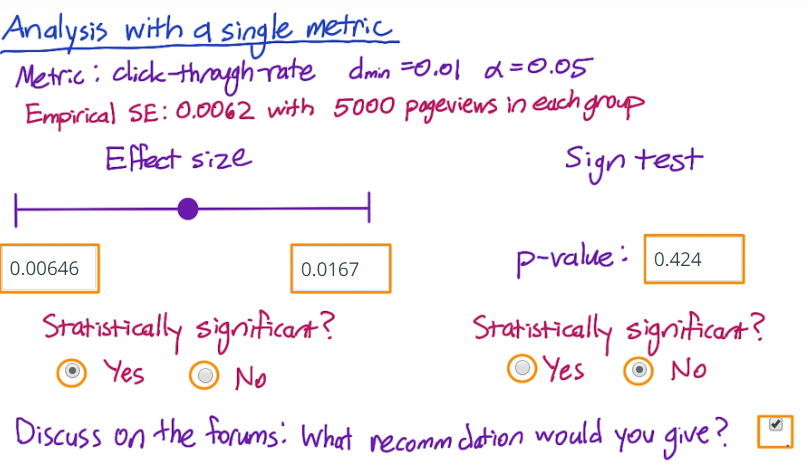 Analysis with a single metric
Metric: click-through-rate dmin =0.01 α=0.05
Empirical SE: 0.0062 with 5000 pageviews in each group
Effect size
Sign test
0.00646
0.0167
p-value: 0.424
Statistically significant?
Yes No
Statistically significant?
Yes No
Discuss on the forums: What recomm dation would you give?